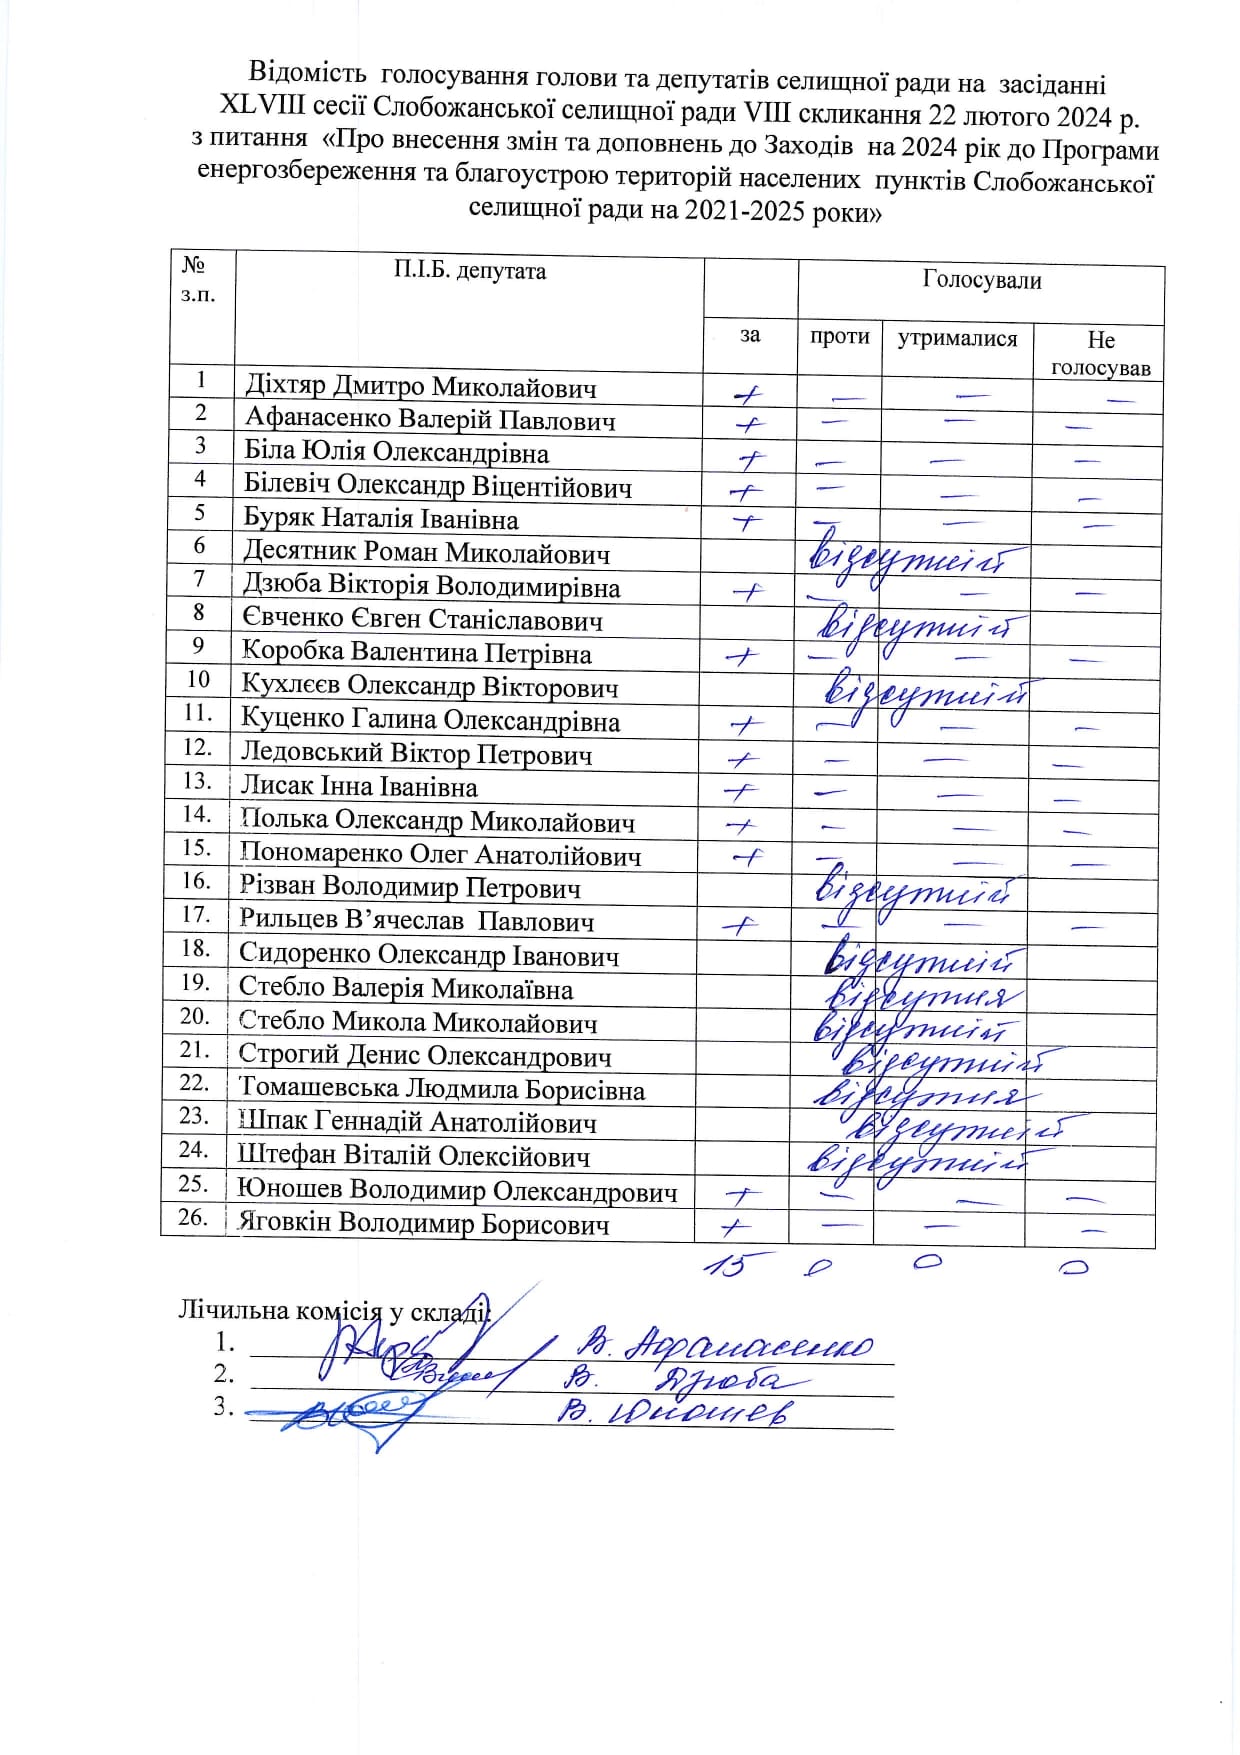 Відомість голосування голови та депутатів селищної ради на засіданні
XLVIII сесії Слобожанської селищної ради VIII скликання 22 лютого 2024 р.
з питання «Про внесення змін та доповнень до Заходів на 2024 рік до Програми
енергозбереження та благоустрою територій населених пунктів Слобожанської
селищної ради на 2021-2025 роки»
№ з.п. П.І.Б. депутата Голосували
за проти утрималися Не голосував
1 Діхтяр Дмитро Миколайович + — — —
2 Афанасенко Валерій Павлович + — — —
3 Біла Юлія Олександрівна + — — —
4 Білевіч Олександр Віцентійович + — — —
5 Буряк Наталія Іванівна + — — —
6 Десятник Роман Миколайович відсутній
7 Дзюба Вікторія Володимирівна + — — —
8 Євченко Євген Станіславович відсутній
9 Коробка Валентина Петрівна + — — —
10 Кухлєєв Олександр Вікторович відсутній
11. Куценко Галина Олександрівна + — — —
12. Ледовський Віктор Петрович + — — —
13. Лисак Інна Іванівна + — — —
14. Полька Олександр Миколайович + — — —
15. Пономаренко Олег Анатолійович + — — —
16. Різван Володимир Петрович відсутній
17. Рильцев В’ячеслав Павлович + — — —
18. Сидоренко Олександр Іванович відсутній
19. Стебло Валерія Миколаївна відсутня
20. Стебло Микола Миколайович відсутній
21. Строгий Денис Олександрович відсутній
22. Томашевська Людмила Борисівна відсутня
23. Шпак Геннадій Анатолійович відсутній
24. Штефан Віталій Олексійович відсутній
25. Юношев Володимир Олександрович + — — —
26. Яговкін Володимир Борисович + — — —
15 0 0 0
Лічильна комісія у складі:
1. В. Афанасенко
2. В. Дзюба
3. В. Юношев